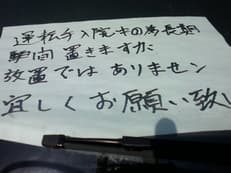 運転手入院中の為長期
駐間置きますが
放置ではありません
宜しくお願い致し